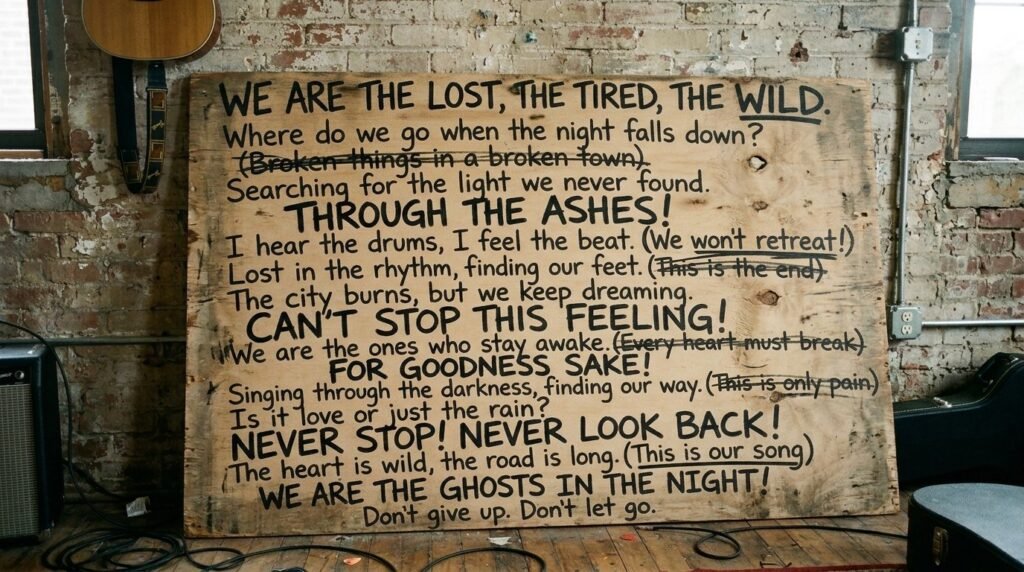 WE ARE THE LOST, THE TIRED, THE WILD.
Where do we go when the night falls down?
(Broken things in a broken town).
Searching for the light we never found.
THROUGH THE ASHES!
I hear the drums, I feel the beat. (We won't retreat!)
Lost in the rhythm, finding our feet. (This is the end)
The city burns, but we keep dreaming.
CAN'T STOP THIS FEELING!
We are the ones who stay awake. (Every heart must break)
FOR GOODNESS SAKE!
Singing through the darkness, finding our way. (This is only pain)
Is it love or just the rain?
NEVER STOP! NEVER LOOK BACK!
The heart is wild, the road is long. (This is our song)
WE ARE THE GHOSTS IN THE NIGHT!
Don't give up. Don't let go.